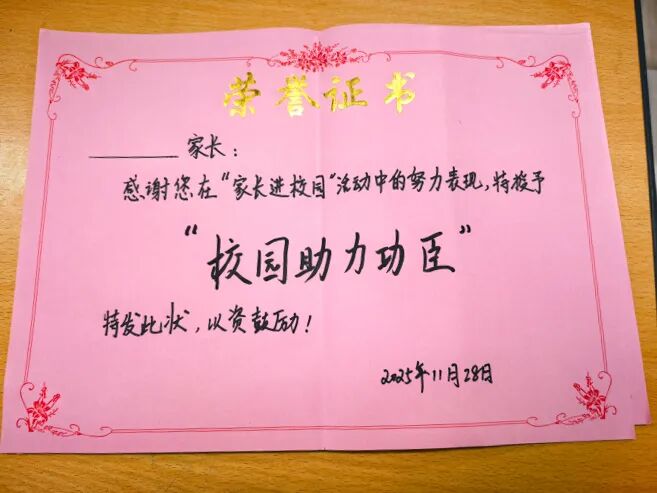 荣誉证书
________家长：
感谢您在“家长进校园”活动中的努力表现，特授予
“校园助力功臣”
特发此状，以资鼓励！
2025年11月28日